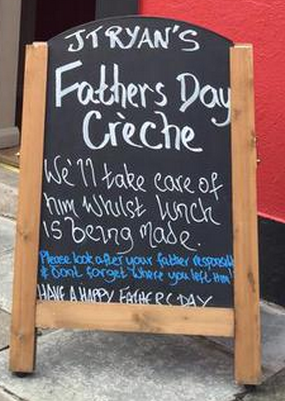 JTRYAN'S
Fathers Day
Crèche
We'll take care of
him whilst lunch
is being made.
Please look after your father responsibly
& Don't forget where you left him!
HAVE A HAPPY FATHERS DAY